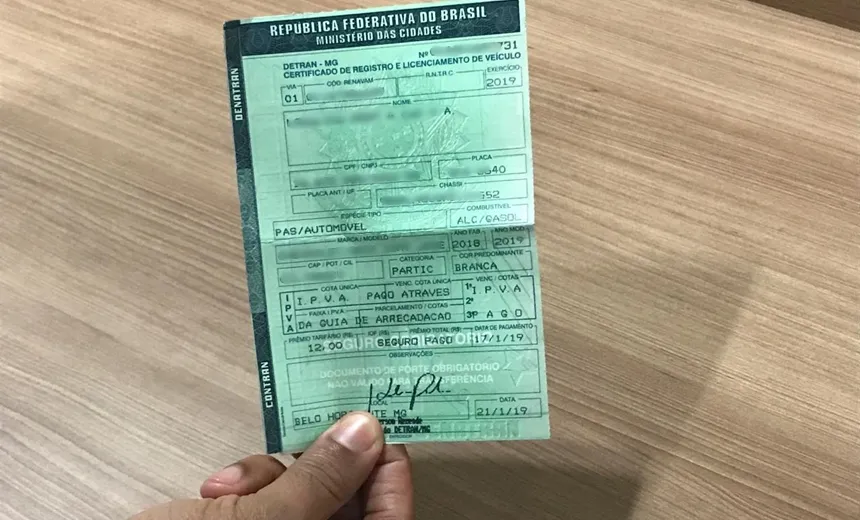 REPÚBLICA FEDERATIVA DO BRASIL
MINISTÉRIO DAS CIDADES
DENATRAN
DETRAN - MG Nº 731
CERTIFICADO DE REGISTRO E LICENCIAMENTO DE VEÍCULO
VIA CÓD. RENAVAM R.N.T.R.C EXERCÍCIO
01 2019
NOME
A.
CPF / CNPJ PLACA
640
PLACA ANT / UF CHASSI
552
ESPÉCIE TIPO COMBUSTÍVEL
PAS/AUTOMOVEL ALC/GASOL
MARCA / MODELO ANO FAB. ANO MOD.
2018 2019
CAP / POT / CIL CATEGORIA COR PREDOMINANTE
PARTIC BRANCA
IPVA
COTA ÚNICA VENC. COTA ÚNICA VENC / COTAS
I.P.V.A. PAGO ATRAVES 1ª I.P.V.A
FAIXA I.P.V.A. PARCELAMENTO / COTAS 2ª
DA GUIA DE ARRECADACAO 3ª P A G O
PRÊMIO TARIFÁRIO (R$) IOF (R$) PRÊMIO TOTAL (R$) DATA DE PAGAMENTO
12,00 SEGURO PAGO 17/1/19
OBSERVAÇÕES
DOCUMENTO DE PORTE OBRIGATÓRIO
NÃO VÁLIDO PARA
CONTRAN
LOCAL DATA
BELO MG 21/1/19
DETRAN/MG